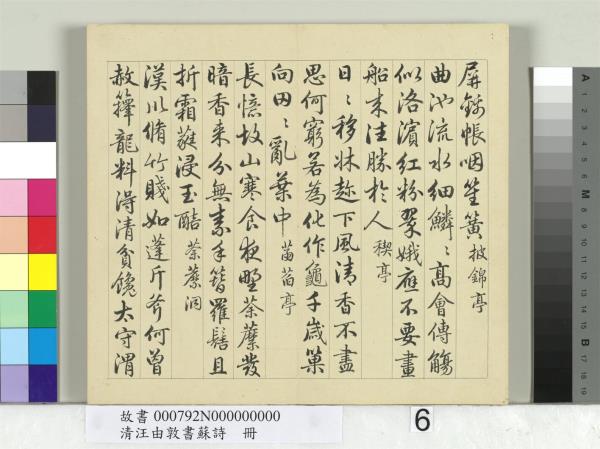 屏錦帳咽笙簧披錦亭
曲池流水細鱗〻高會傳觴
似洛濱紅粉翠娥應不要畫
船来往勝於人禊亭
日〻移牀趂下風清香不盡
思何窮若為化作龜千歲巢
向田〻亂葉中菡萏亭
長憶故山寒食夜野荼蘼發
暗香来分無素手簪羅髻且
折霜蕤浸玉醅荼蘼洞
漢川脩竹賤如蓬斤斧何曾
赦籜龍料得清貧饞太守渭
故書 000792N000000000
清汪由敦書蘇詩 冊
6
A 1 2 3 4 5 6 M 8 9 10 11 12 13 14 15 B 17 18 19